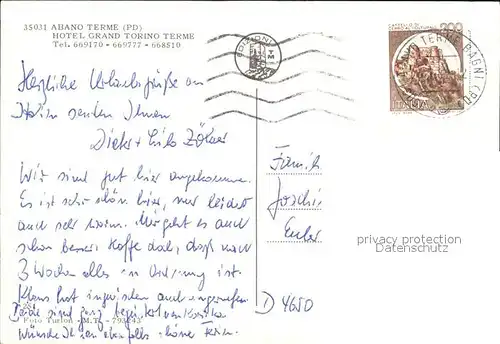 35031 ABANO TERME (PD)
HOTEL GRAND TORINO TERME
Tel. 669170 - 669777 - 668510
200
Herzliche Urlaubsgrüße an
senden Ihnen
Dieter + Zöllner
Wir sind gut hier angekommen.
Es ist sehr schön hier, nur leider
auch sehr warm. Mir geht es auch
schon besser, hoffe doch, daß nach
3 Wochen alles in Ordnung ist.
Klaus hat inzwischen auch angerufen.
Beide sind ganz begeistert von Korsika
Wünsche Ihnen ebenfalls schöne Ferien.
Foto Turlon - M.T.
Familie
D 4650
privacy protection